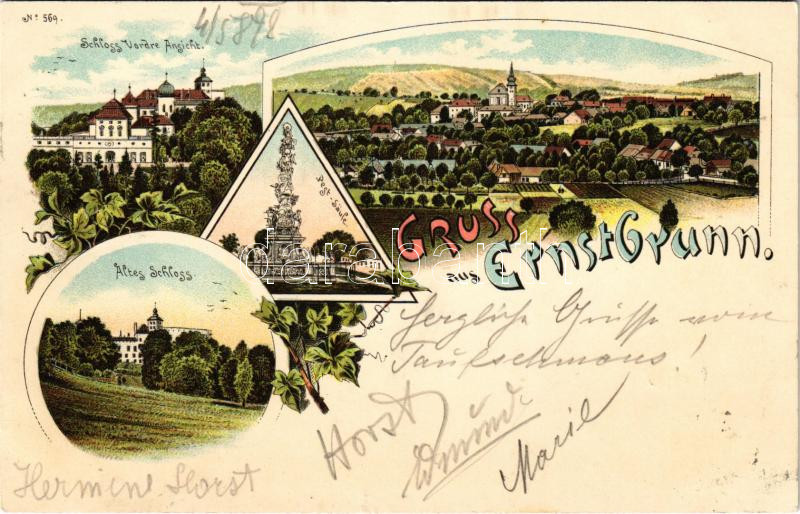 No 569.
4/5 892
Schloss Vordre Ansicht.
Pest-Säule
Gruss
aus Ernstbrunn.
Altes Schloss.
darabanth
Herzliche Grüsse vom
Taufschmaus!
Horst
Edmund
Marie
Hermine Horst